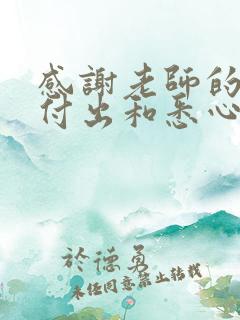 感謝老師的
付出和悉心
於德勇
未经同意禁止转载